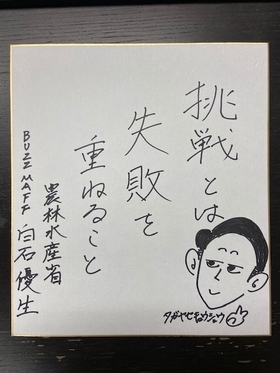 挑戦とは
失敗を
重ねること
農林水産省
BUZZMAFF 白石優生
タガヤセキュウシュウ